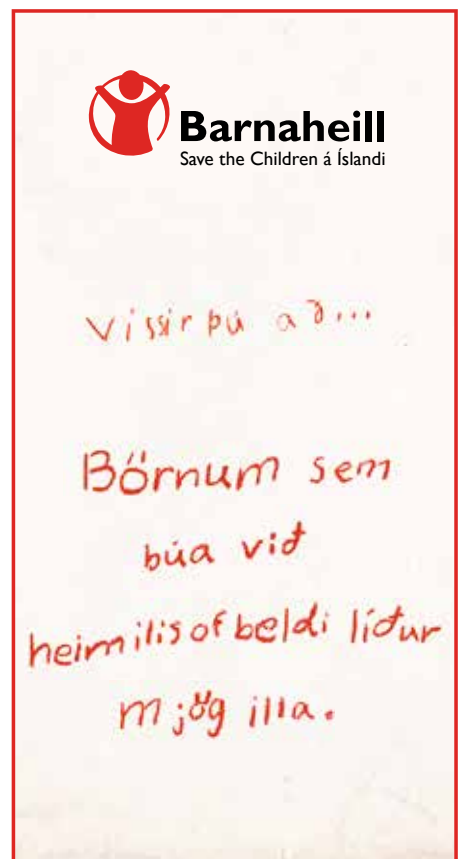 Barnaheill
Save the Children á Íslandi
Vissir þú að...
Börnum sem
búa við
heimilisofbeldi líður
mjög illa.